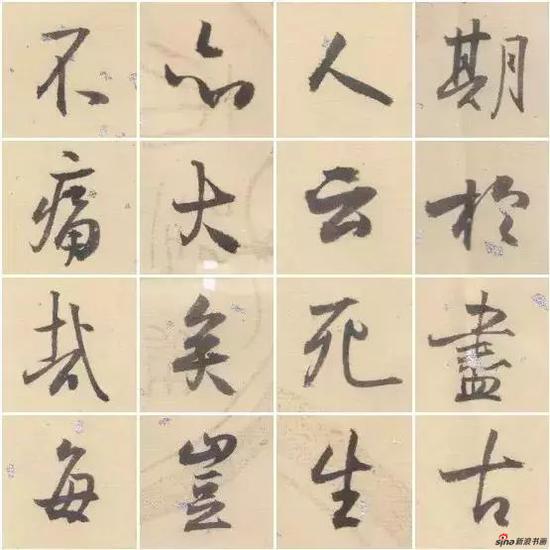 期於盡古
人云死生
亦大矣豈
不痛哉每
sina新浪书画